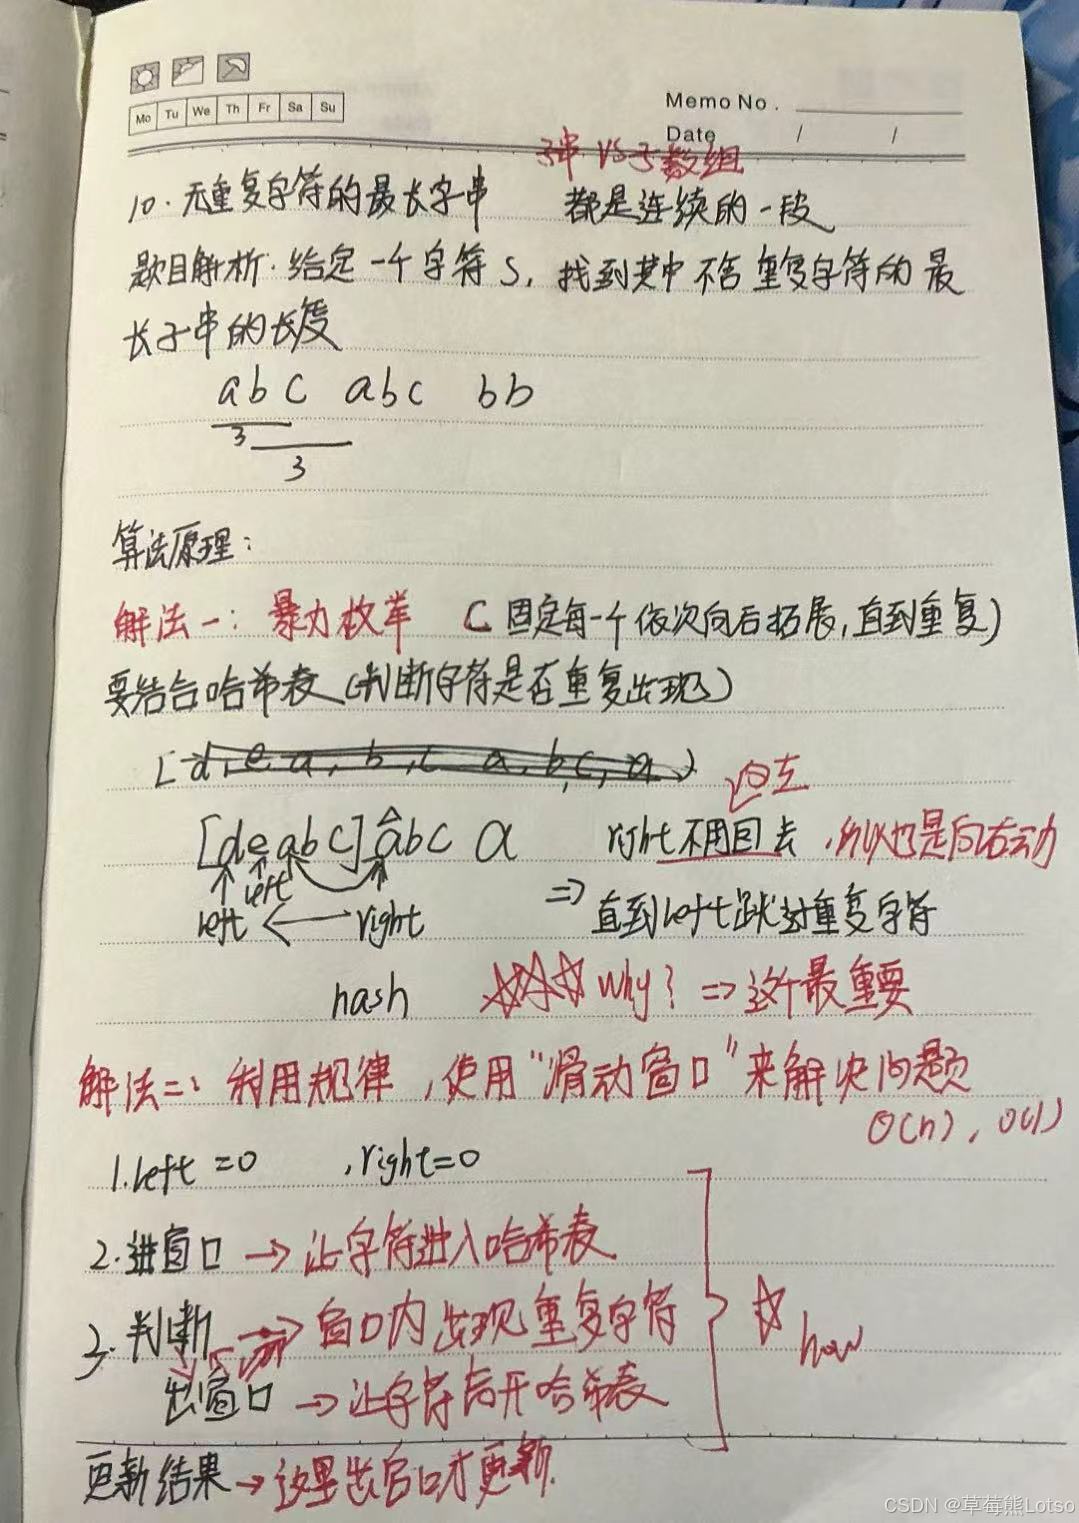 Mo Tu We Th Fr Sa Su
Memo No.
Date / /
子串 VS 子数组
10. 无重复字符的最长字串 都是连续的一段
题目解析: 给定一个字符 S, 找到其中不含重复字符的最
长子串的长度
abc abc bb
3
3
算法原理:
解法一: 暴力枚举 (固定每一个依次向后拓展, 直到重复)
要结合哈希表(判断字符是否重复出现)
[d, e, a, b, c a, b, c, a]
向左
[deabc]abc a right 不用回去, 所以也是向右动
left
left right => 直到left跳过重复字符
hash ☆☆☆ Why? => 这个最重要
解法二: 利用规律, 使用"滑动窗口"来解决问题
O(n), O(1)
1. left =0 , right=0
2. 进窗口 → 让字符进入哈希表
3. 判断 → 窗口内出现重复字符
☆ how
出窗口 → 让字符离开哈希表
更新结果 → 这里出窗口才更新.
CSDN @草莓熊Lotso